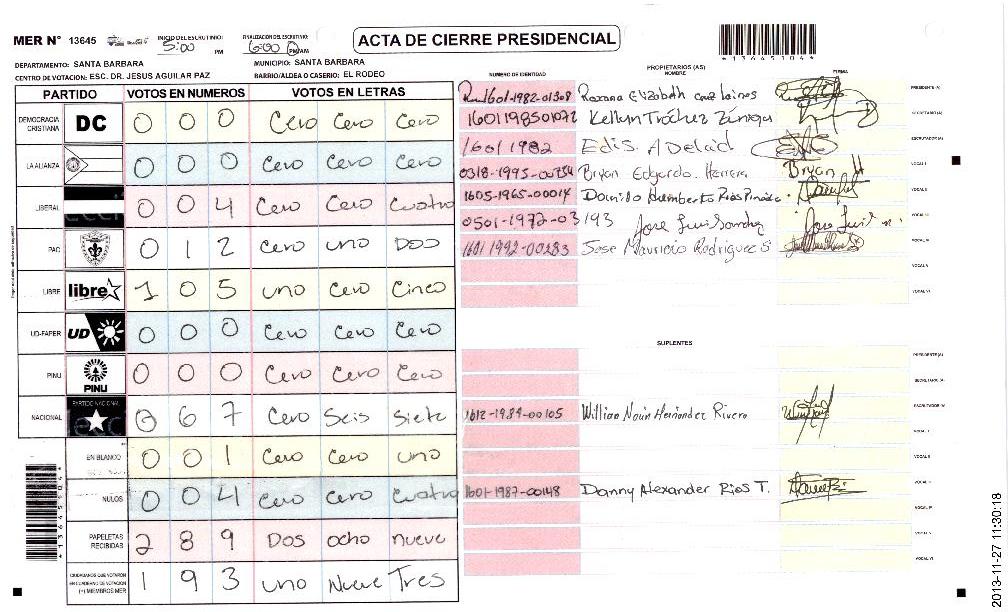 MER N° 13645
INICIO DEL ESCRUTINIO: 5:00 PM
FINALIZACION DEL ESCRUTINIO: 6:00 PM/AM
ACTA DE CIERRE PRESIDENCIAL
*1364510 4*
DEPARTAMENTO: SANTA BARBARA
MUNICIPIO: SANTA BARBARA
CENTRO DE VOTACION: ESC. DR. JESUS AGUILAR PAZ
BARRIO/ALDEA O CASERIO: EL RODEO
PARTIDO VOTOS EN NUMEROS VOTOS EN LETRAS
DEMOCRACIA CRISTIANA DC 0 0 0 Cero Cero Cero
LA ALIANZA 0 0 0 Cero Cero Cero
LIBERAL 0 0 4 Cero Cero Cuatro
PAC 0 1 2 Cero uno Dos
LIBRE libre 1 0 5 uno Cero Cinco
UD-FAPER UD 0 0 0 Cero Cero Cero
PINU PINU 0 0 0 Cero Cero Cero
NACIONAL PARTIDO NACIONAL 0 6 7 Cero Seis Siete
EN BLANCO 0 0 1 Cero Cero uno
NULOS 0 0 4 Cero Cero Cuatro
PAPELETAS RECIBIDAS 2 8 9 Dos ocho nueve
CIUDADANOS QUE VOTARON EN CUADERNO DE VOTACION (+) MIEMBROS MER 1 9 3 uno Nueve Tres
NUMERO DE IDENTIDAD PROPIETARIOS (AS) NOMBRE FIRMA
1601-1982-01308 Roxana Elizabeth PRESIDENTE (A)
1601198501072 Kellyn Tróchez Zúniga SECRETARIO (A)
1601 1982 Edis Adelaid ESCRUTADOR (A)
0318-1995-00754 Bryan Edgardo Herrera Bryan H VOCAL I
1605-1965-00014 Humberto Rios VOCAL II
0501-1972-03193 Jose Luis Sanchez Jose Luis VOCAL III
1601 1992-00283 Jose Mauricio Rodriguez S VOCAL IV
VOCAL V
VOCAL VI
SUPLENTES
PRESIDENTE (A)
SECRETARIO (A)
1612-1989-00105 Willian Noún Hernández Rivera ESCRUTADOR (A)
VOCAL I
VOCAL II
1601-1987-00148 Danny Alexander Rios T. VOCAL III
VOCAL IV
VOCAL V
VOCAL VI
2013-11-27 11:30:18